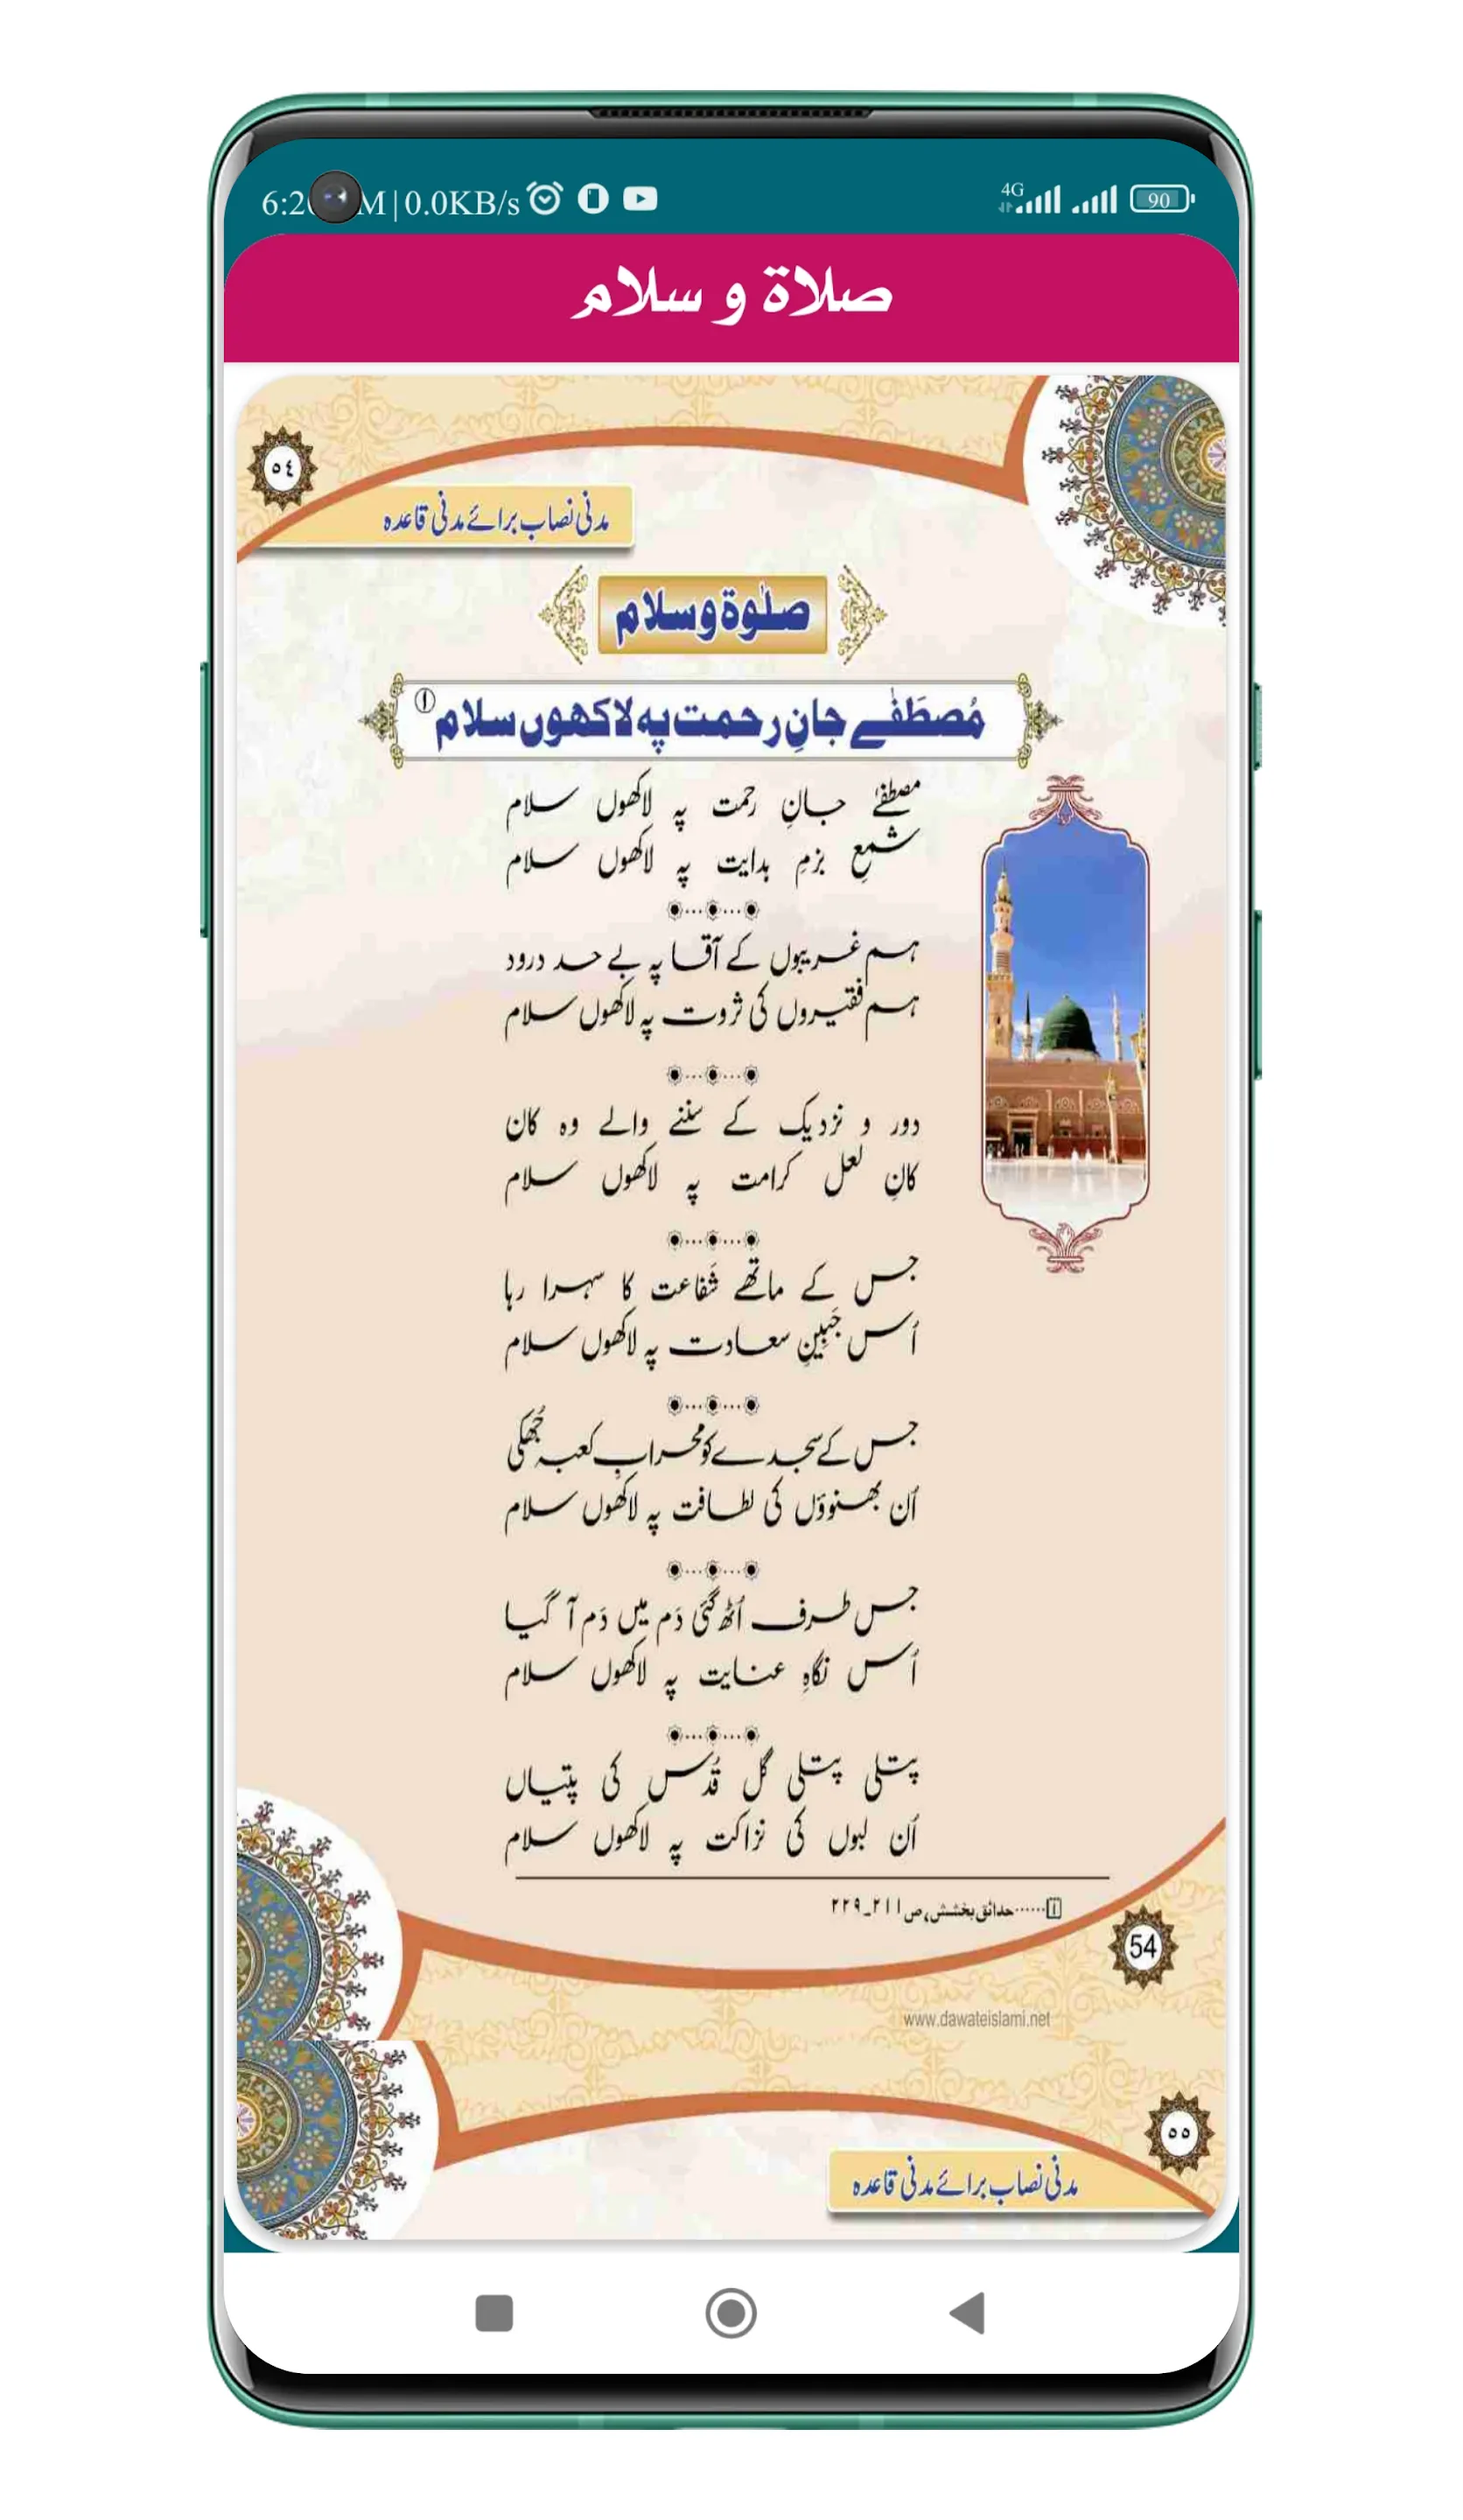 M | 0.0KB/s
4G
90
صلاة و سلام
٥٤
مدنی نصاب برائے مدنی قاعدہ
صلٰوۃ و سلام
مُصطَفٰے جانِ رحمت پہ لاکھوں سلام ①
مصطفےٰ جانِ رحمت پہ لاکھوں سلام
شمعِ بزمِ ہدایت پہ لاکھوں سلام
ہم غریبوں کے آقا پہ بے حد درود
ہم فقیروں کی ثروت پہ لاکھوں سلام
دور و نزدیک کے سننے والے وہ کان
کانِ لعل کرامت پہ لاکھوں سلام
جس کے ماتھے شَفاعت کا سہرا رہا
اُس جَبِینِ سعادت پہ لاکھوں سلام
جس کے سجدے کو محرابِ کعبہ جُھکی
اُن بھنوؤں کی لطافت پہ لاکھوں سلام
جس طرف اُٹھ گئی دَم میں دَم آ گیا
اُس نگاہِ عنایت پہ لاکھوں سلام
پتلی پتلی گل قُدْس کی پتیاں
اُن لبوں کی نزاکت پہ لاکھوں سلام
1……حدائقِ بخشش، ص۲۱۱۔۲۲۹
54
www.dawateislami.net
٥٥
مدنی نصاب برائے مدنی قاعدہ